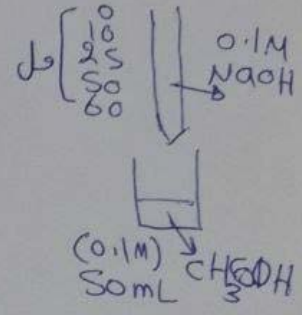 0
10
25
50
60
0.1M
NaOH
(0.1M)
50mL
CH3COOH